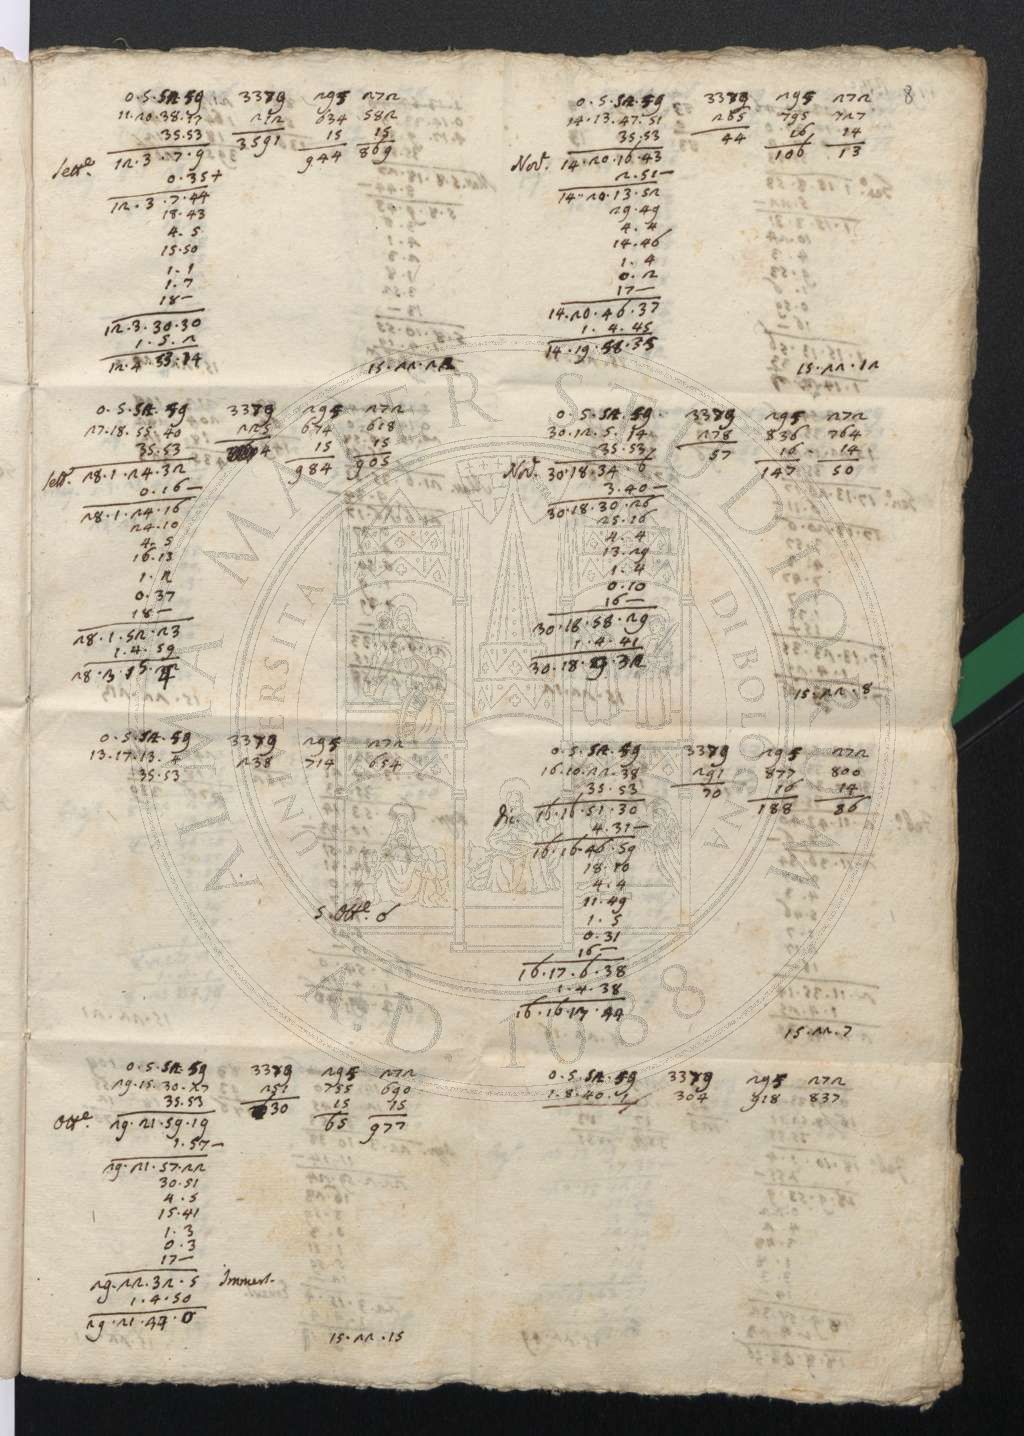 8
0.5.52.59 3379 295 272
11.20.38.17 212 634 582
35.53 3591 15 15
Sett.e 12.3.7.9 944 869
0.35+
12.3.7.44
18.43
4.5
15.50
1.1
1.7
18–
12.3.30.30
1.5.2
15.22.22
0.5.52.59 3379 295 272
27.18.55.40 225 674 618
35.53 15 15
Sett.e 28.1.24.32 984 905
0.16–
28.1.24.16
24.10
4.5
16.13
1.2
0.37
18–
28.1.52.23
1.4.59
0.5.52.59 3379 295 272
13.17.13.4 238 714 654
35.53
S. Ott.e 6
0.5.52.59 3379 295 272
29.15.30.27 251 755 690
35.53 3630 15 15
Ott.e 29.21.59.19 65 977
1.57–
29.21.57.22
30.51
4.5
15.41
1.3
0.3
17–
29.22.32.5 Immers.
1.4.50
29.21.44.0
15.22.15
0.5.52.59 3379 295 272
14.13.47.51 265 795 727
35.53 44 16 14
Nov. 14.20.16.43 106 13
2.51–
14.20.13.52
29.49
4.4
14.46
1.4
0.2
17–
14.20.46.37
1.4.45
14.19.58.35
15.22.12
0.5.52.59 3379 295 272
30.12.5.14 278 836 764
35.53 57 16 14
Nov. 30.18.34.6 147 50
3.40–
30.18.30.26
25.16
4.4
13.29
1.4
0.10
16–
30.18.58.29
1.4.41
30.18.9.32
15.22.8
0.5.52.59 3379 295 272
16.10.22.38 291 877 800
35.53 70 16 14
Dic. 16.16.51.30 188 86
4.31–
16.16.46.59
18.10
4.4
11.49
1.5
0.31
16–
16.17.6.38
1.4.38
16.16.17.44
15.22.7
0.5.52.59 3379 295 272
1.8.40.1 304 918 837
ALMA MATER STUDIORUM
UNIVERSITÀ DI BOLOGNA
A.D. 1088